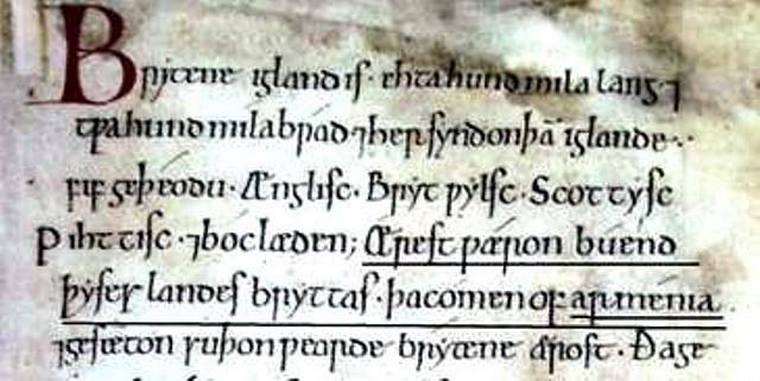 Brytene igland is· ehta hund mila lang· ⁊
tƿa hund mila brad ⁊ her syndon þā iglande·.·
fif geþeodu· Ænglisc· Bryt ƿylsc· Scottysc
Pihttisc· ⁊ boclæden; Ærest ƿæron buend
þyses landes bryttas· þa comen of armenia
⁊ gesæton suþonƿearde brytene ærost· Ða ge